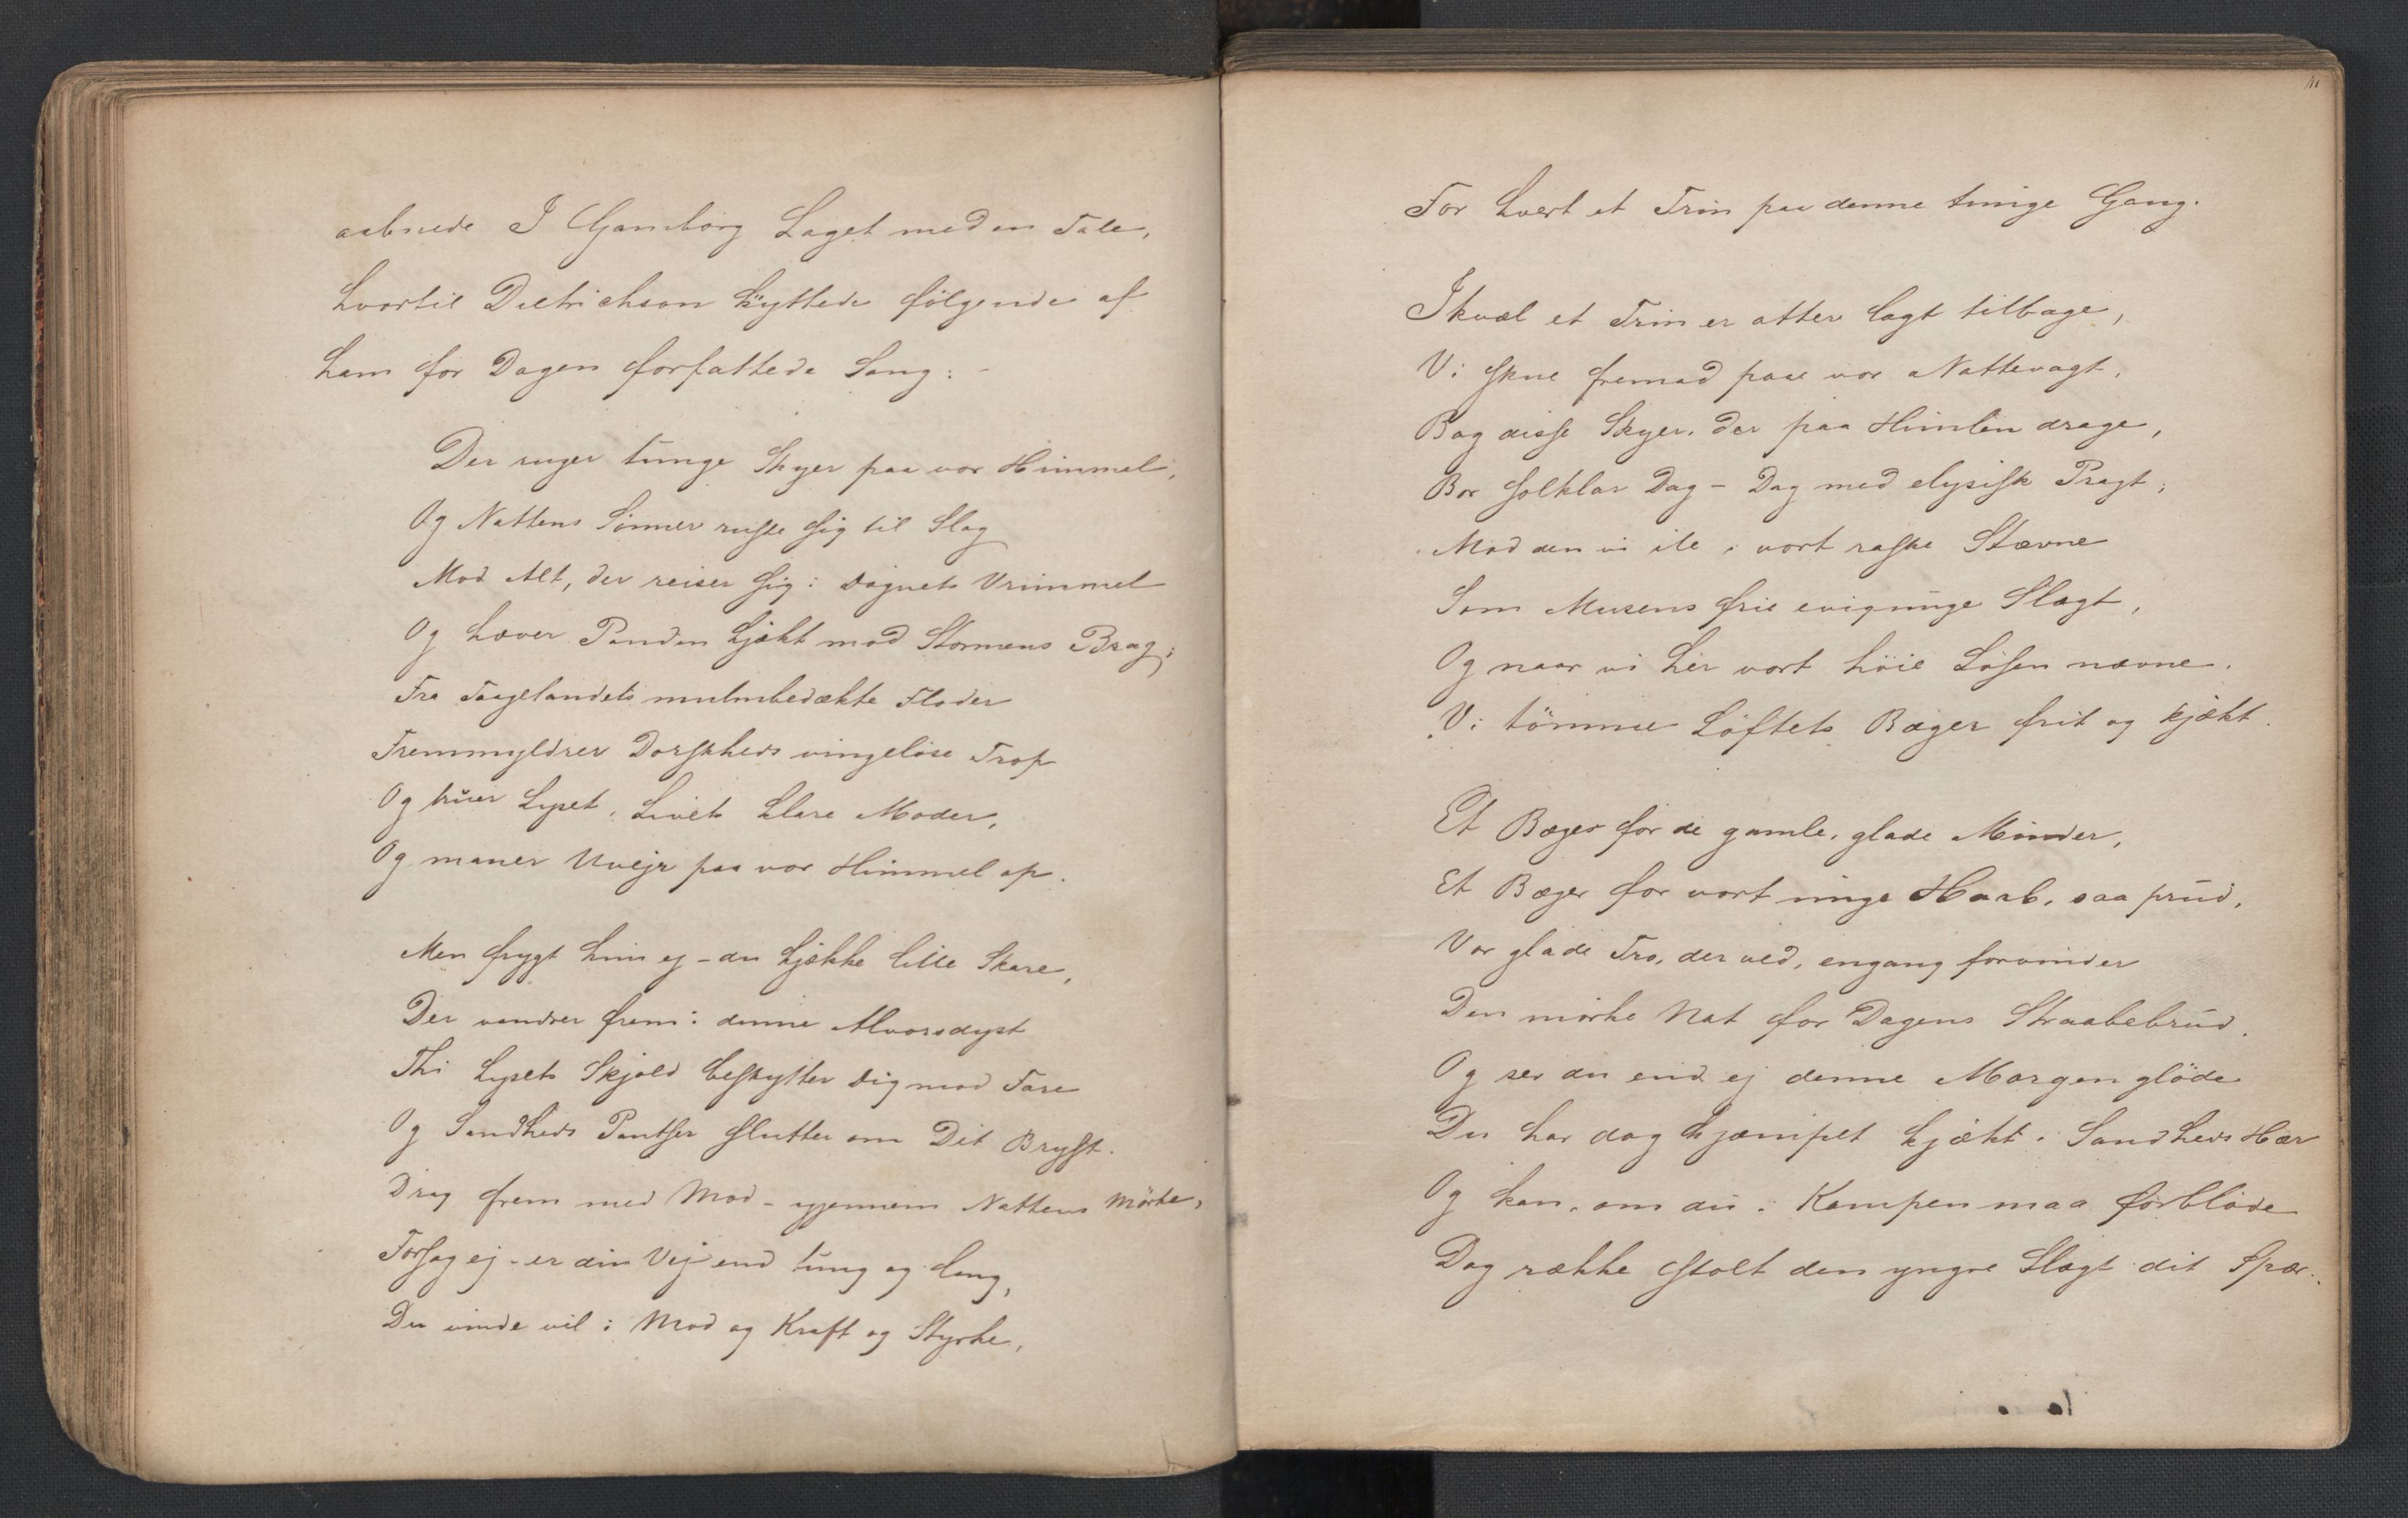 aabnede J Gamborg Laget med en Tale,
hvortil Dietrichson knyttede følgende af
ham for Dagen forfattede Sang:-
Der ruger tunge Skyer paa vor Himmel,
Og Nattens Sønner ruste sig til Slag
Mod Alt, der reiser sig i Døgnets Vrimmel
Og hæver Panden kjækt mod Stormens Brag;
Fra Taagelandets mulmbedækte Floder
Fremmyldrer Dorskheds vingeløse Trop
Og truer Lyset, Livets klare Moder,
Og maner Uvejr paa vor Himmel op.
Men frygt kun ej - du kjække lille Skare,
Der vandrer frem i denne Alvorsdyst
Thi Lysets Skjold beskytter dig mod Fare
Og Sandheds Pantser slutter om Dit Bryst.
Drag frem med Mod - igjennem Nattens Mörke,
Forsag ej - er din Vej end tung og lang,
Du vinde vil i Mod og Kraft og Styrke,
For hvert et Trin paa denne tunge Gang.
Ikvæl et Trin er atter lagt tilbage,
Vi skue fremad paa vor Nattevagt,
Bag disse Skyer, der paa Himlen drage,
Bor solklar Dag - Dag med elysisk Pragt;
Mod den vi ile i vort raske Stævne
Som Musens frie evigunge Slægt,
Og naar vi her vort höie Løsen nævne,
Vi tömme Löftets Bæger frit og kjækt.
Et Bæger for de gamle, glade Minder,
Et Bæger for vort unge Haab, saa prud,
Vor glade Tro, der ved, engang forvinder
Den mörke Nat for Dagens Straalebrud.
Og ser du end ej denne Morgenglöde
Du har dog kjæmpet kjækt i Sandheds Hær
Og kan, om du i Kampen maa forbløde
Dog række stolt den yngre Slægt dit Spær.